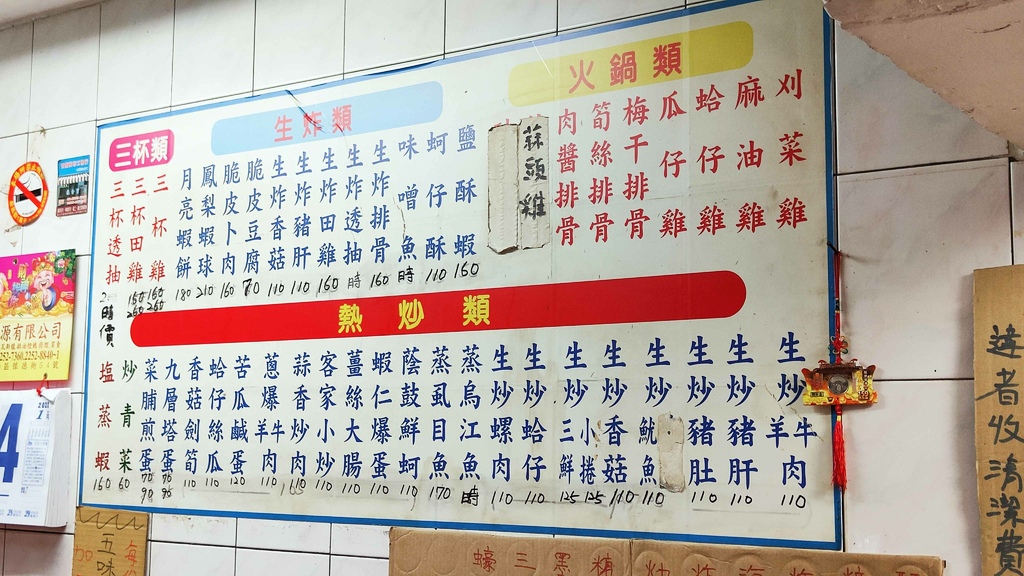 三杯類
三杯透抽 時價
三杯田雞 160 260
三杯雞 160 260
生炸類
月亮蝦餅 180
鳳梨蝦球 210
脆皮卜肉 160
脆皮豆腐 70
生炸香菇 110
生炸豬肝 110
生炸田雞 160
生炸透抽 時
生炸排骨 160
味噌魚 時
蚵仔酥 110
鹽酥蝦 160
火鍋類
蒜頭雞
肉醬排骨
筍絲排骨
梅干排骨
瓜仔雞
蛤仔雞
麻油雞
刈菜雞
熱炒類
塩蒸蝦 160
炒青菜 60
菜脯煎蛋 70 90
九層塔蛋 70 95
香菇劍筍 110
蛤仔絲瓜 110
苦瓜鹹蛋 120
蔥爆羊牛肉 110
蒜香炒肉
客家小炒 110
薑絲大腸 110
蝦仁爆蛋 110
蔭鼓鮮蚵 110
蒸虱目魚 170
蒸烏江魚 時
生炒螺肉 110
生炒蛤仔 110
生炒三鮮 125
生炒小捲 125
生炒香菇 110
生炒魷魚 110
生炒豬肚 110
生炒豬肝 110
生炒羊牛肉 110
源有限公司
252-7360.2252-8840-1
4
五味
加
每份
蠔三黑
違者收清潔費